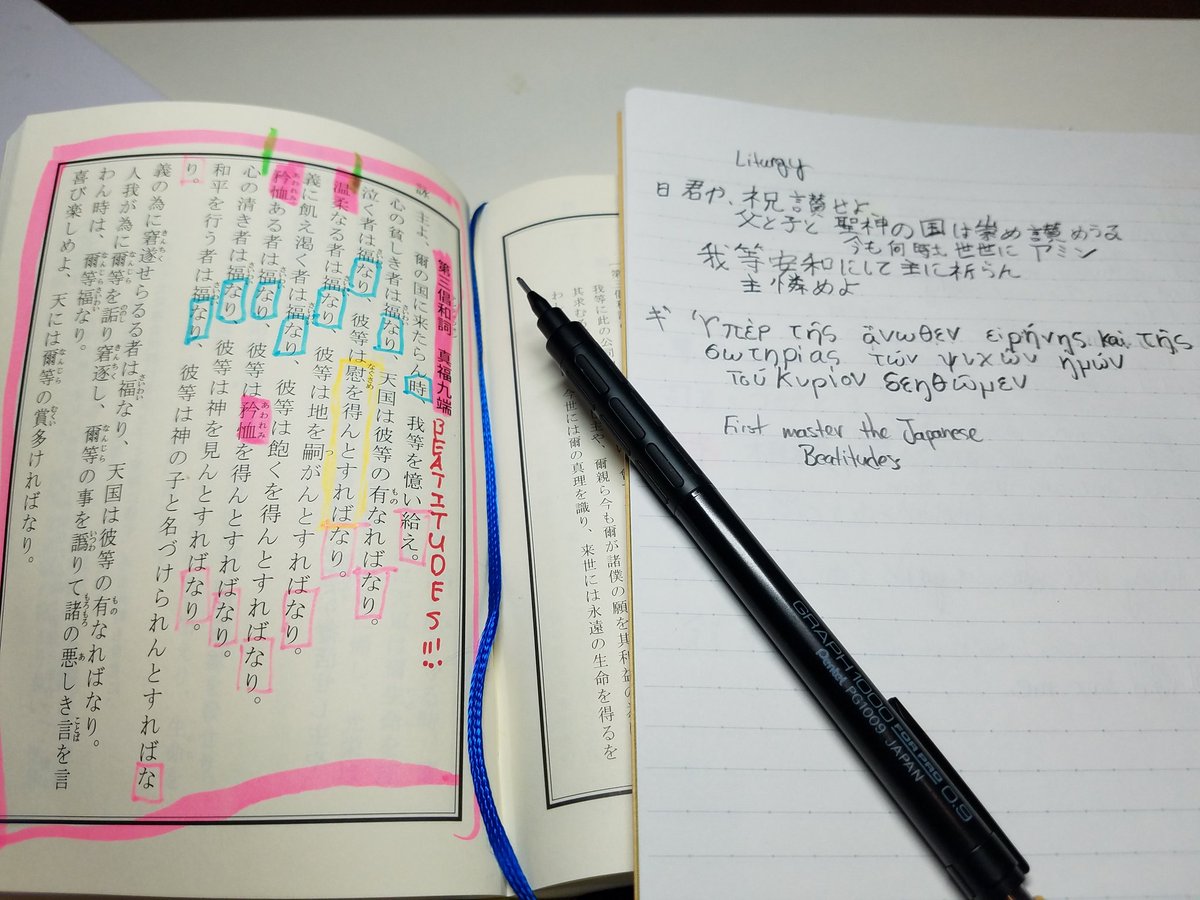 詠
第三倡和詞 真福九端 BEATITUDES!!!
主よ、爾の国に来たらん時、我等を憶い給え。
心の貧しき者は福なり、天国は彼等の有なればなり。
泣く者は福なり、彼等は慰を得んとすればなり。
温柔なる者は福なり、彼等は地を嗣がんとすればなり。
義に飢え渇く者は福なり、彼等は飽くを得んとすればなり。
矜恤ある者は福なり、彼等は矜恤を得んとすればなり。
心の清き者は福なり、彼等は神を見んとすればなり。
和平を行う者は福なり、彼等は神の子と名づけられんとすればな
り。
義の為に窘逐せらるる者は福なり、天国は彼等の有なればなり。
人我が為に爾等を詬り窘逐し、爾等の事を譌りて諸の悪しき言を言
わん時は、爾等福なり。
喜び楽しめよ、天には爾等の賞多ければなり。
我等に此の公
其求む
爾親ら今も爾が諸僕の願を其利益の
今世には爾の真理を識り、来世には永遠の生命を得るを
Liturgy
日 君や、祝讃せよ
父と子と聖神の国は崇め讃めらる
今も何時も世世に アミン
我等安和にして主に祈らん
主憐めよ
ギ Ὑπὲρ τῆς ἄνωθεν εἰρήνης καὶ τῆς
σωτηρίας τῶν ψυχῶν ἡμῶν
τοῦ Κυρίου δεηθῶμεν
First master the Japanese
Beatitudes
GRAPH 1000 FOR PRO 0.9
Pentel PG1009 JAPAN